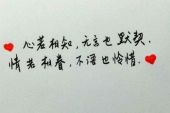 心若相知,无言也默契,
情若相眷,不语也怜惜.